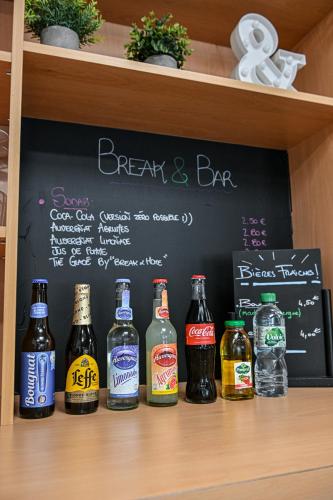 &
BREAK & BAR
SODAS:
COCA-COLA (VERSION ZÉRO POSSIBLE :))
AUVERGNAT AGRUMES
AUVERGNAT LIMONADE
JUS DE POMME
THÉ GLACÉ BY "BREAK & HOME"
2.50 €
2.80 €
2.80 €
BIÈRES FRAÎCHES!
4,50
4,00
Bougnat
Leffe
Auvergnat
Limonade
Auvergnat
Agrumes
Coca-Cola
Volvic